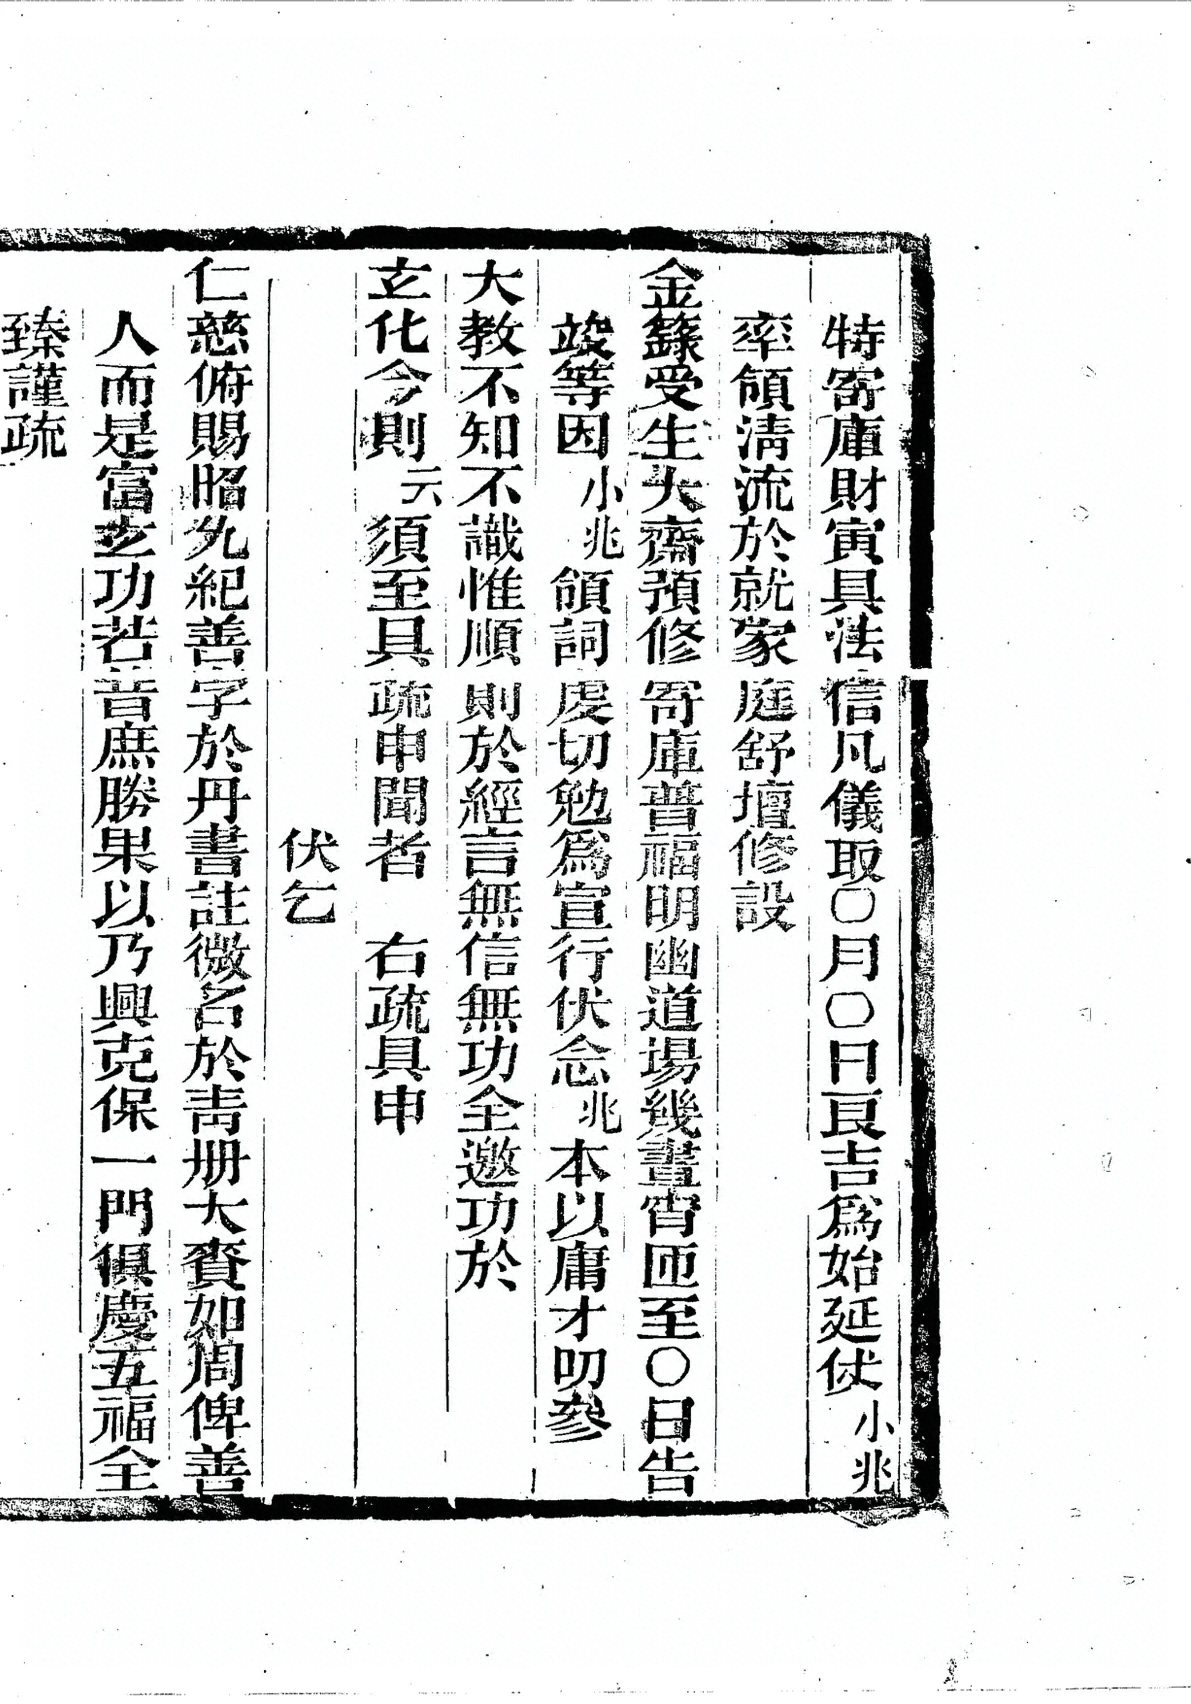 特寄庫財寅具法信凡儀取〇月〇日良吉爲始延仗小兆
率領淸流於就家庭舒壇修設
金籙受生大齋預修寄庫普福明幽道場幾晝宵匝至〇日告
竣等因小兆領詞虔切勉爲宣行伏念兆本以庸才叨參
大教不知不識惟順則於經言無信無功全邀功於
玄化今則云云須至具疏申聞者　右疏具申
伏乞
仁慈俯賜昭允紀善字於丹書註微名於靑册大賚如周俾善
人而是富玄功若昔庶勝果以乃興克保一門俱慶五福全
臻謹疏